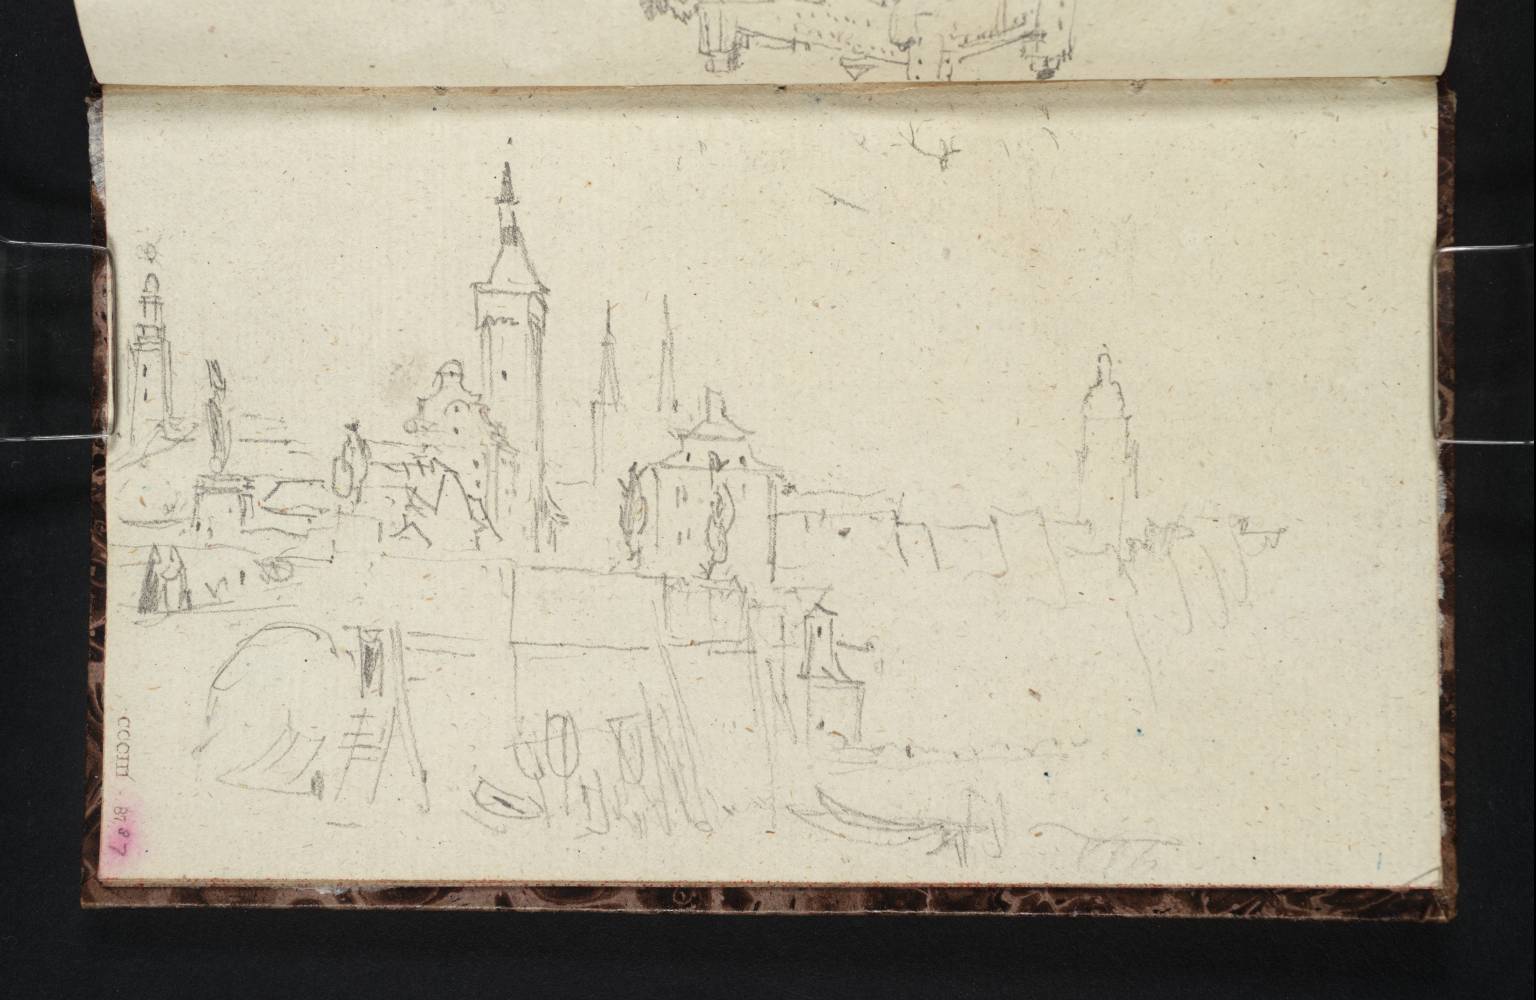 CCCIII . 87
87